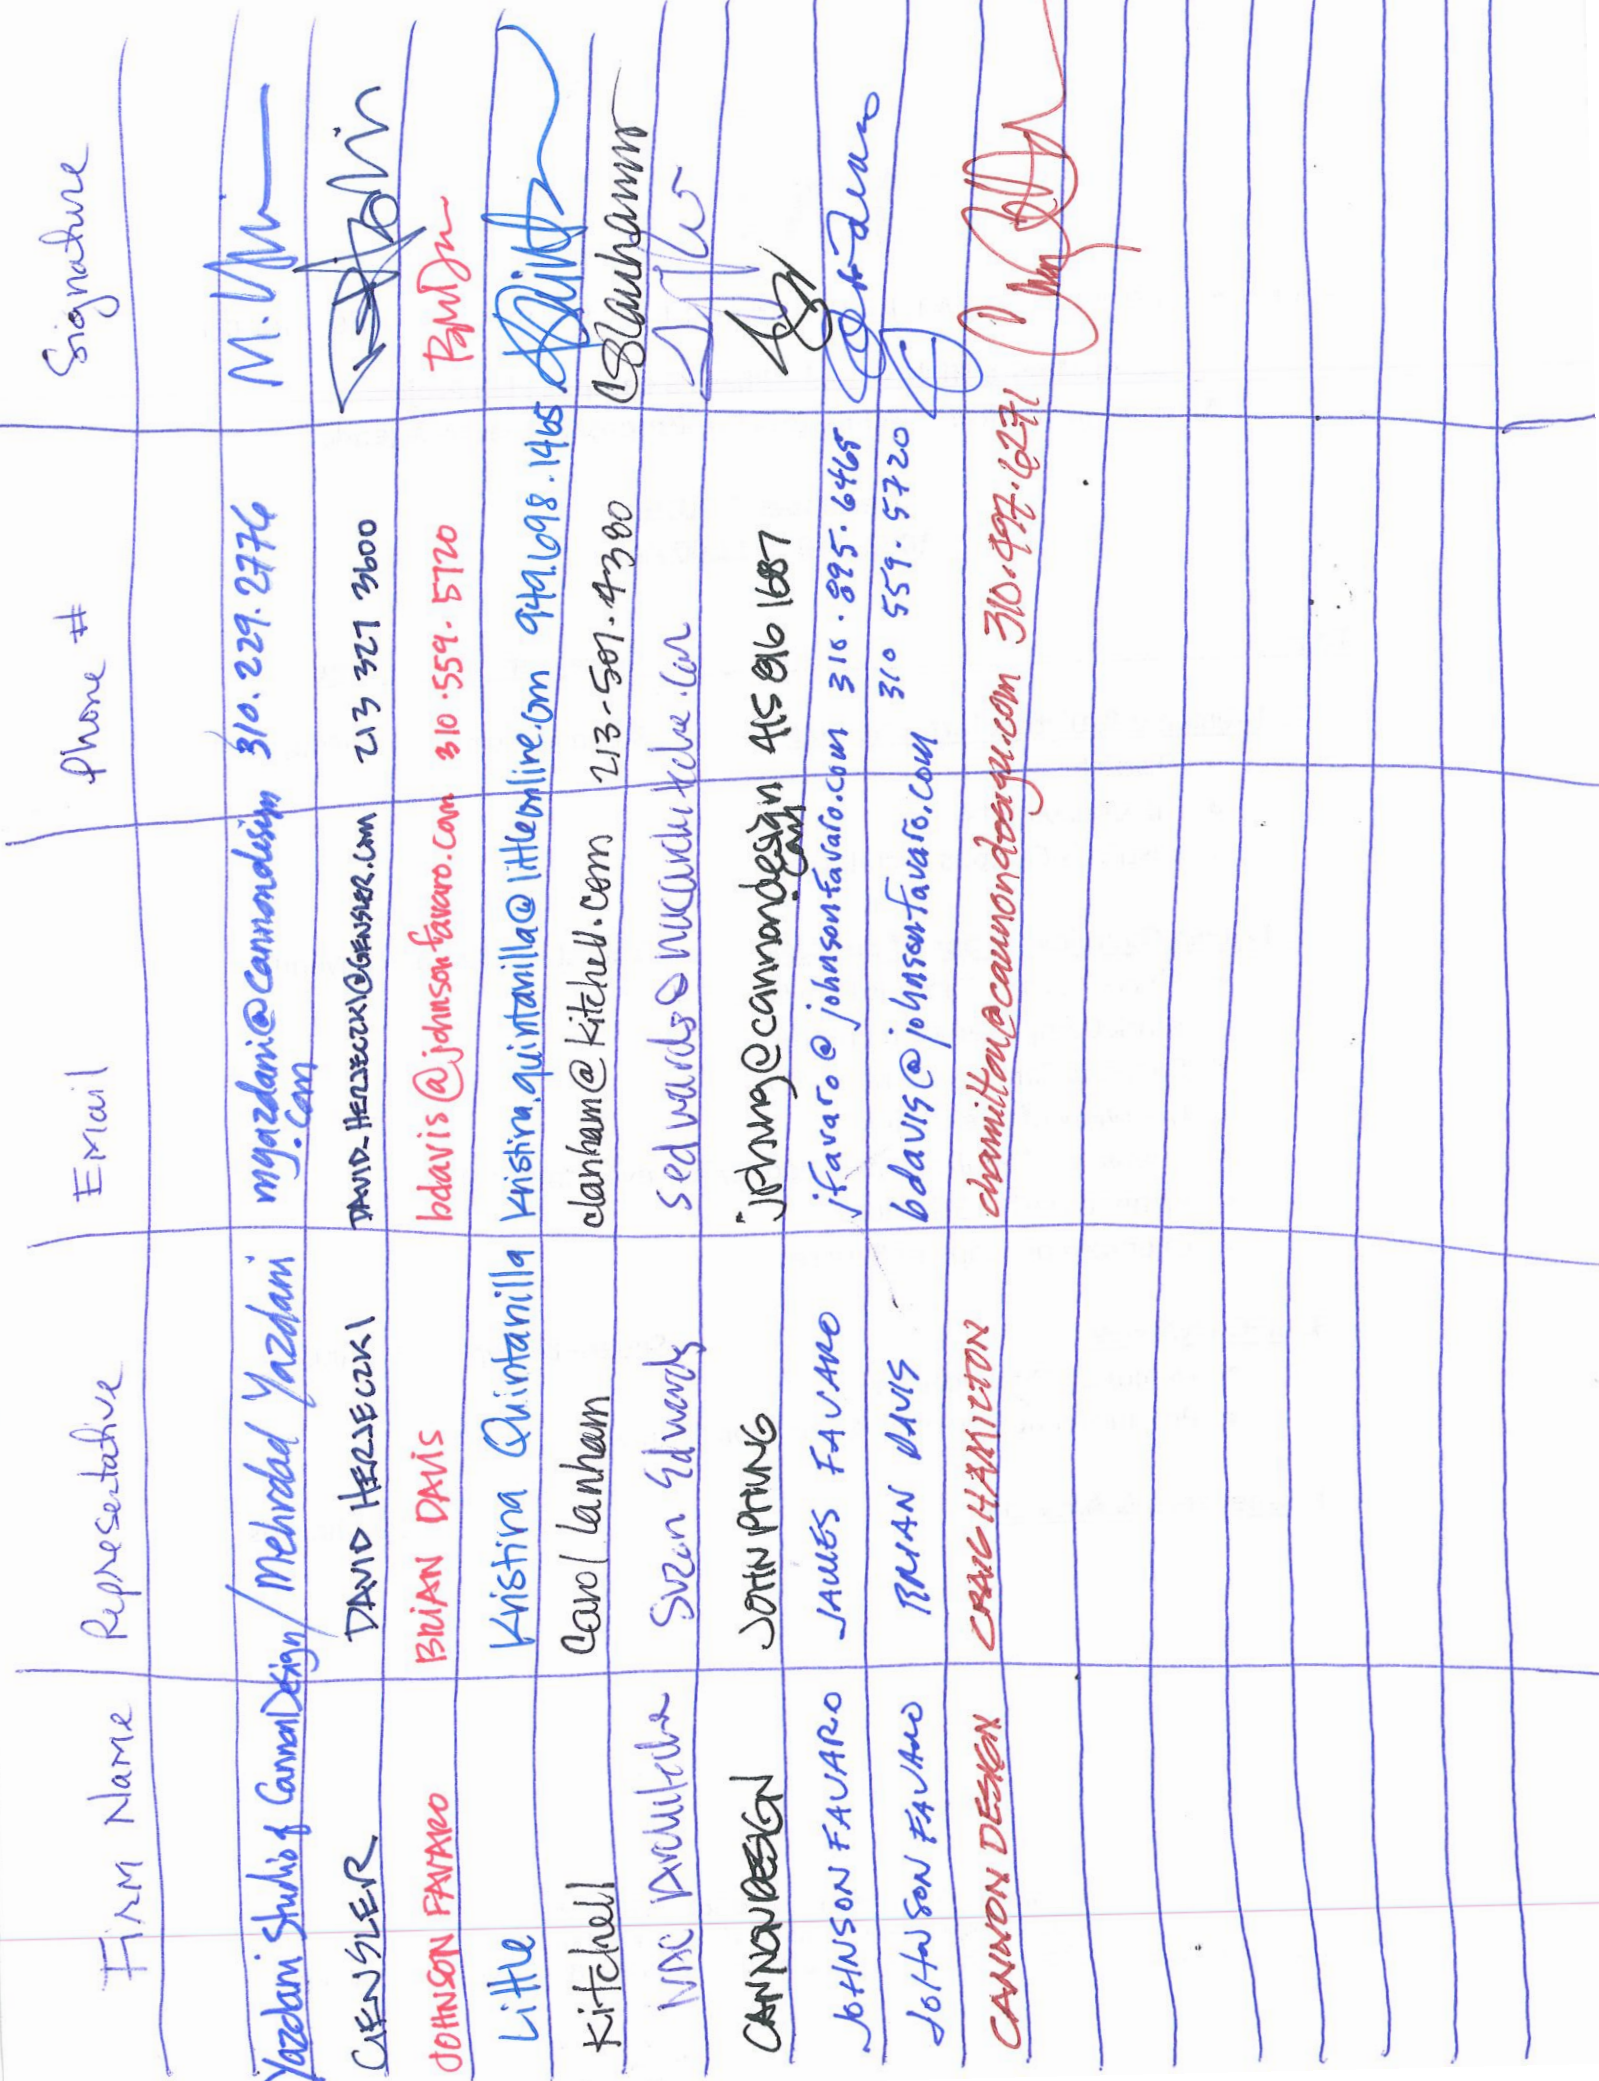 Firm Name Representative Email Phone # Signature
Yazdani Studio of CannonDesign / Mehrdad Yazdani myazdani@cannondesign 310.229.2776 M.
.com
GENSLER DAVID HERJECZKI DAVID_HERJECZKI@GENSLER.COM 213 327 3600
JOHNSON FAVARO BRIAN DAVIS bdavis@johnsonfavaro.com 310.559.5720
Little Kristina Quintanilla kristina.quintanilla@littleonline.com 949.698.1465
Kitchell Carol Lanham clanham@kitchell.com 213-507-4380 CSLanham
NAC Architecture Suzan Edwards sedwards@nacarchitecture.com
CANNONDESIGN JOHN PHUNG jphung@cannondesign 415 816 1687
.com
JOHNSON FAVARO JAMES FAVARO jfavaro@johnsonfavaro.com 310.895.6465
JOHNSON FAVARO BRIAN DAVIS bdavis@johnsonfavaro.com 310 559.5720
CANNON DESIGN CRAIG HAMILTON chamilton@cannondesign.com 310.497.6271